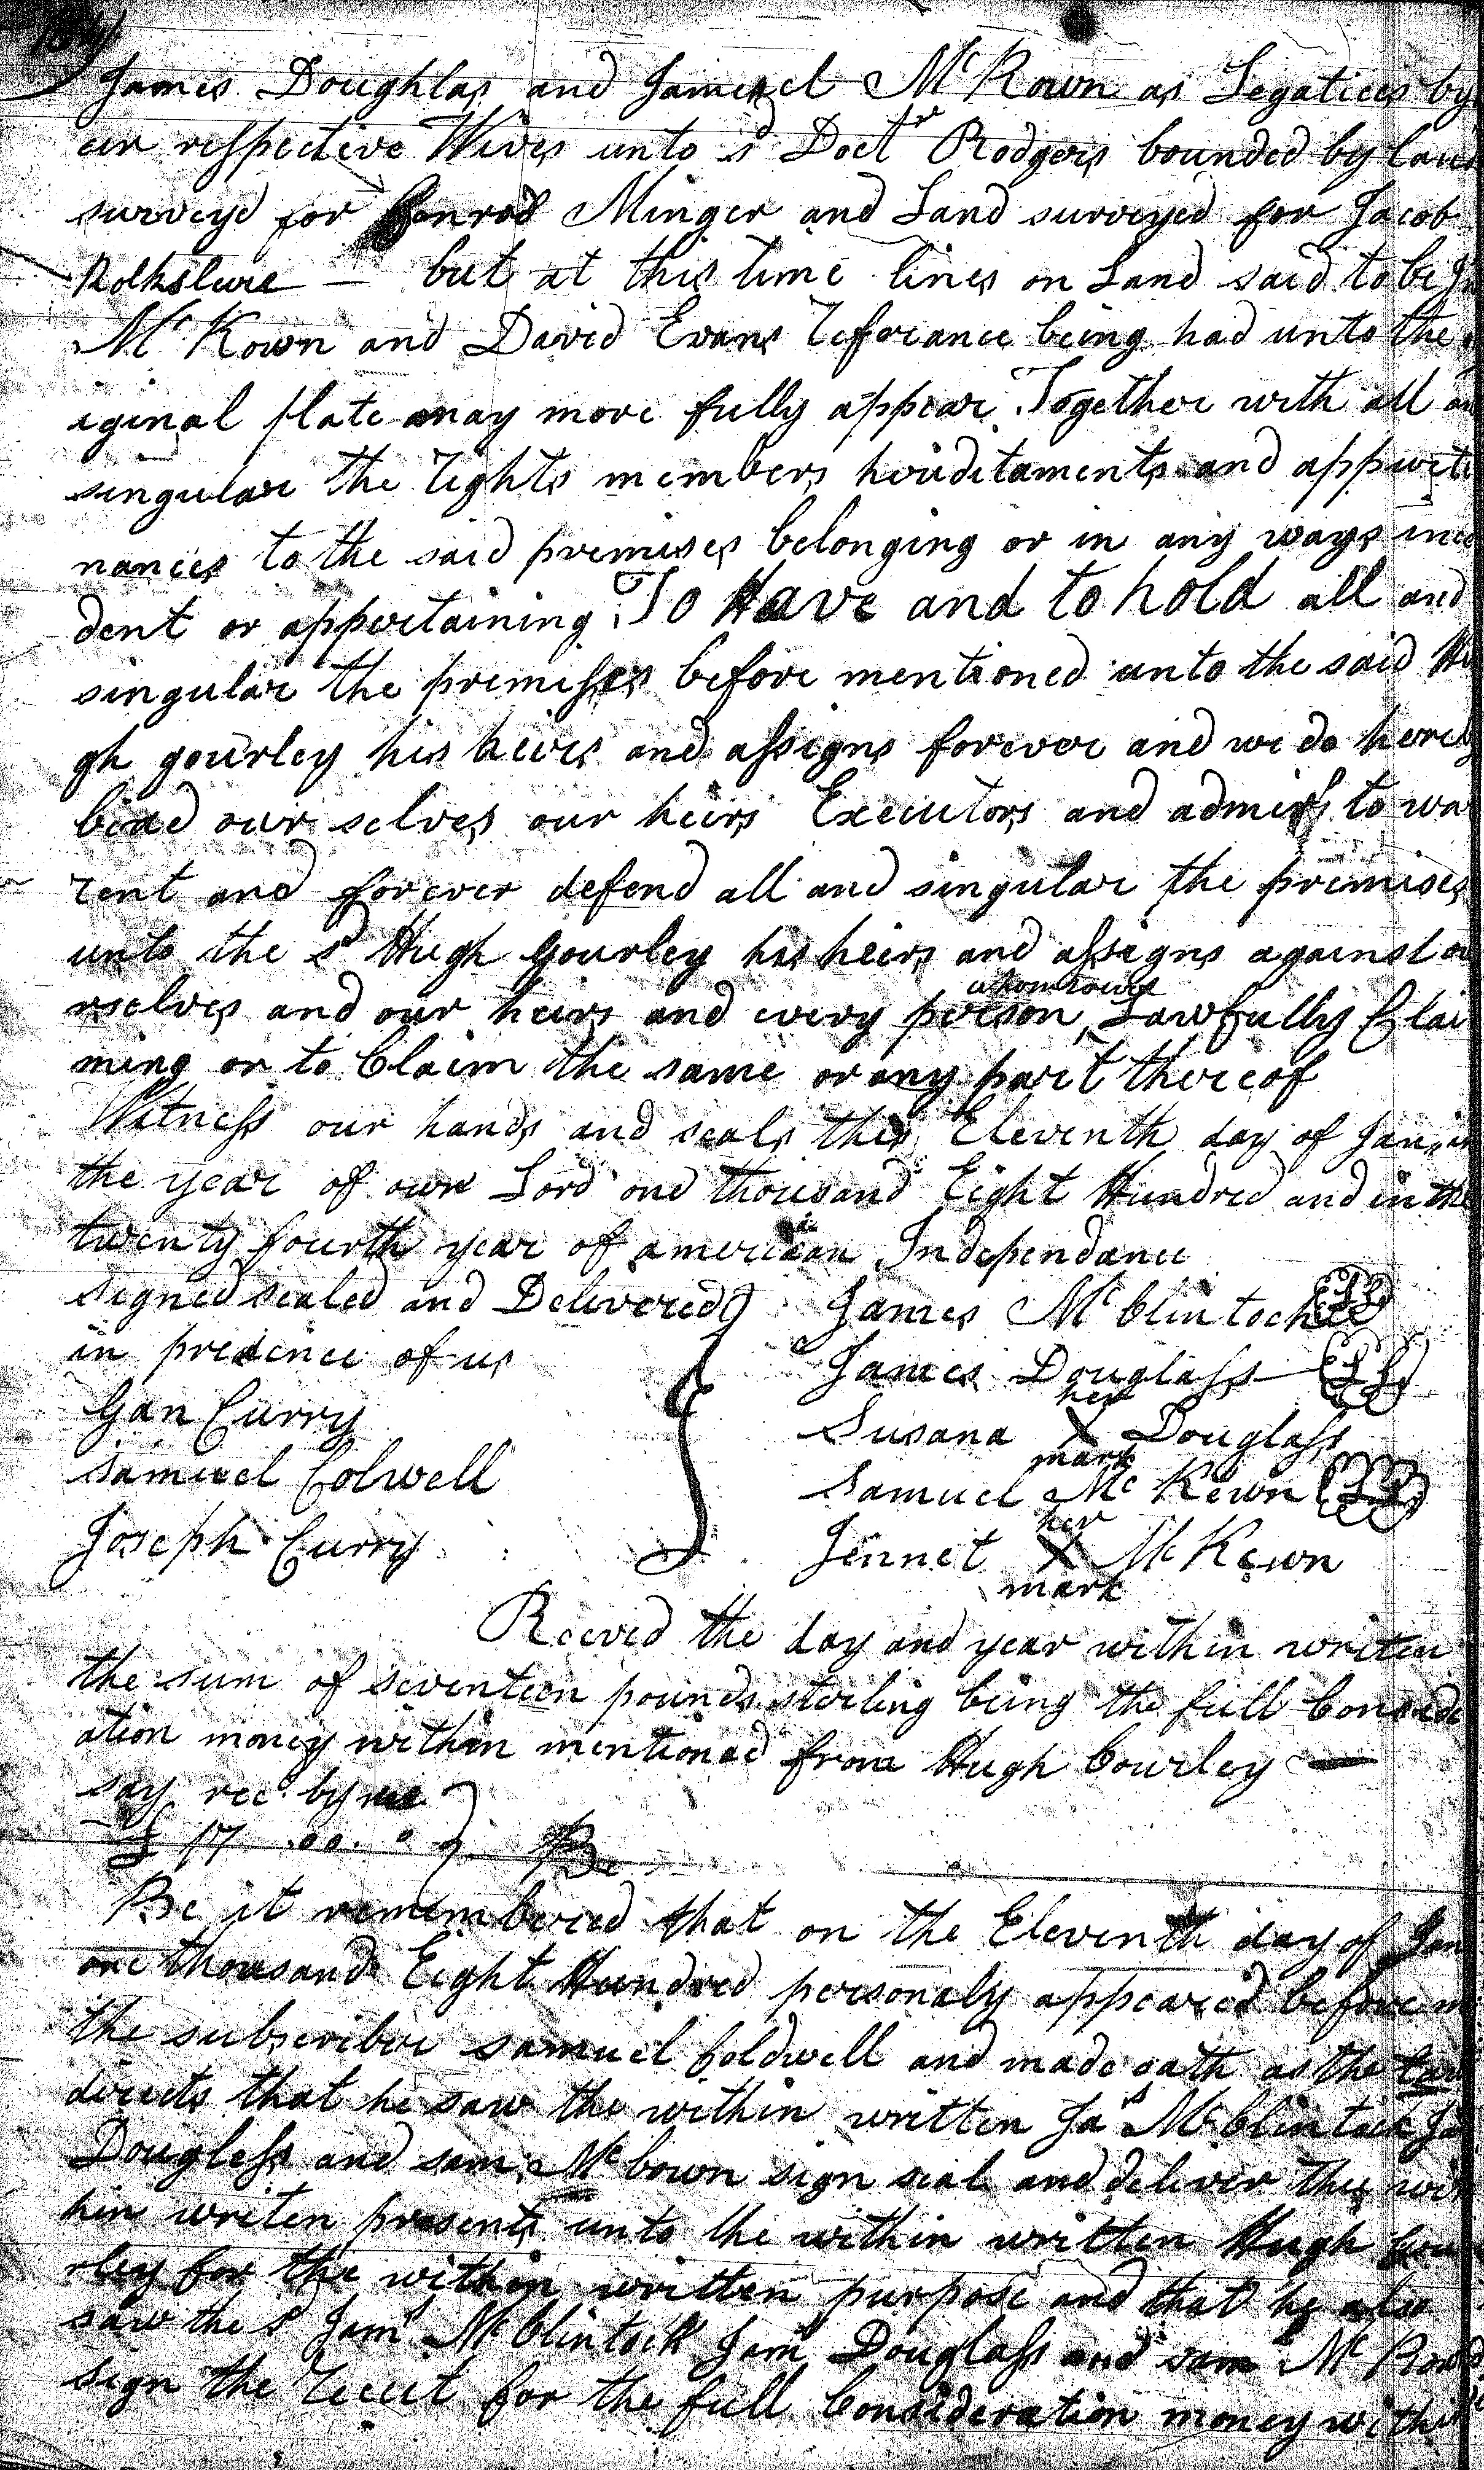 James Doughlas and Samuel McKown as Legatiees by
eir respective Wives unto sd Doctr Rodgers bounded by land
surveyd for Conrod Minger and Land surveyed for Jacob
but at this time lines on Land said to be
McKown and David Evans referance being had unto the
iginal plate may more fully appear. Together with all an
singular the rights members heriditaments and appurte
nances to the said premises belonging or in any ways inci
dent or appertaining To Have and to hold all and
singular the premises before mentioned unto the said Hu
gh gourley his heirs and assigns forever and we do hereby
bind our selves our heirs Executors and admirs to wa
rent and forever defend all and singular the premises
unto the sd Hugh Gourley his heirs and assigns against ou
rselves and our heirs and every person whomsoever Lawfully Clai
ming or to Claim the same or any part thereof
Witness our hands and seals this Eleventh day of Jan, in
the year of our Lord one thousand Eight Hundred and in the
twenty fourth year of american Independance
signed sealed and Delivered James McClintock LS
in presence of us James Douglass LS
Gan Curry Susana her X mark Douglass
Samuel Colwell Samuel McKewn LS
Joseph Curry Jennet her X mark McKewn
Receved the day and year within writen
the sum of seventeen pounds sterling being the full Consider
ation money within mentioned from Hugh Courley —
say rec by me
£ 17 .00. 0 Be
Be it remembered that on the Eleventh day of Jan
one thousand Eight Hundred personaly appeared before m
the subscriber samuel Coldwell and made oath as the Law
directs that he saw the within written Jas McClintock Ja
Douglass and sam. McCown sign seal and deliver the wit
hin writen presents unto the within written Hugh Cou
rley for the within written purpose and that he also
saw the sd Jams McClintock Jam Douglass and sam McKown
sign the receit for the full Consideration money within